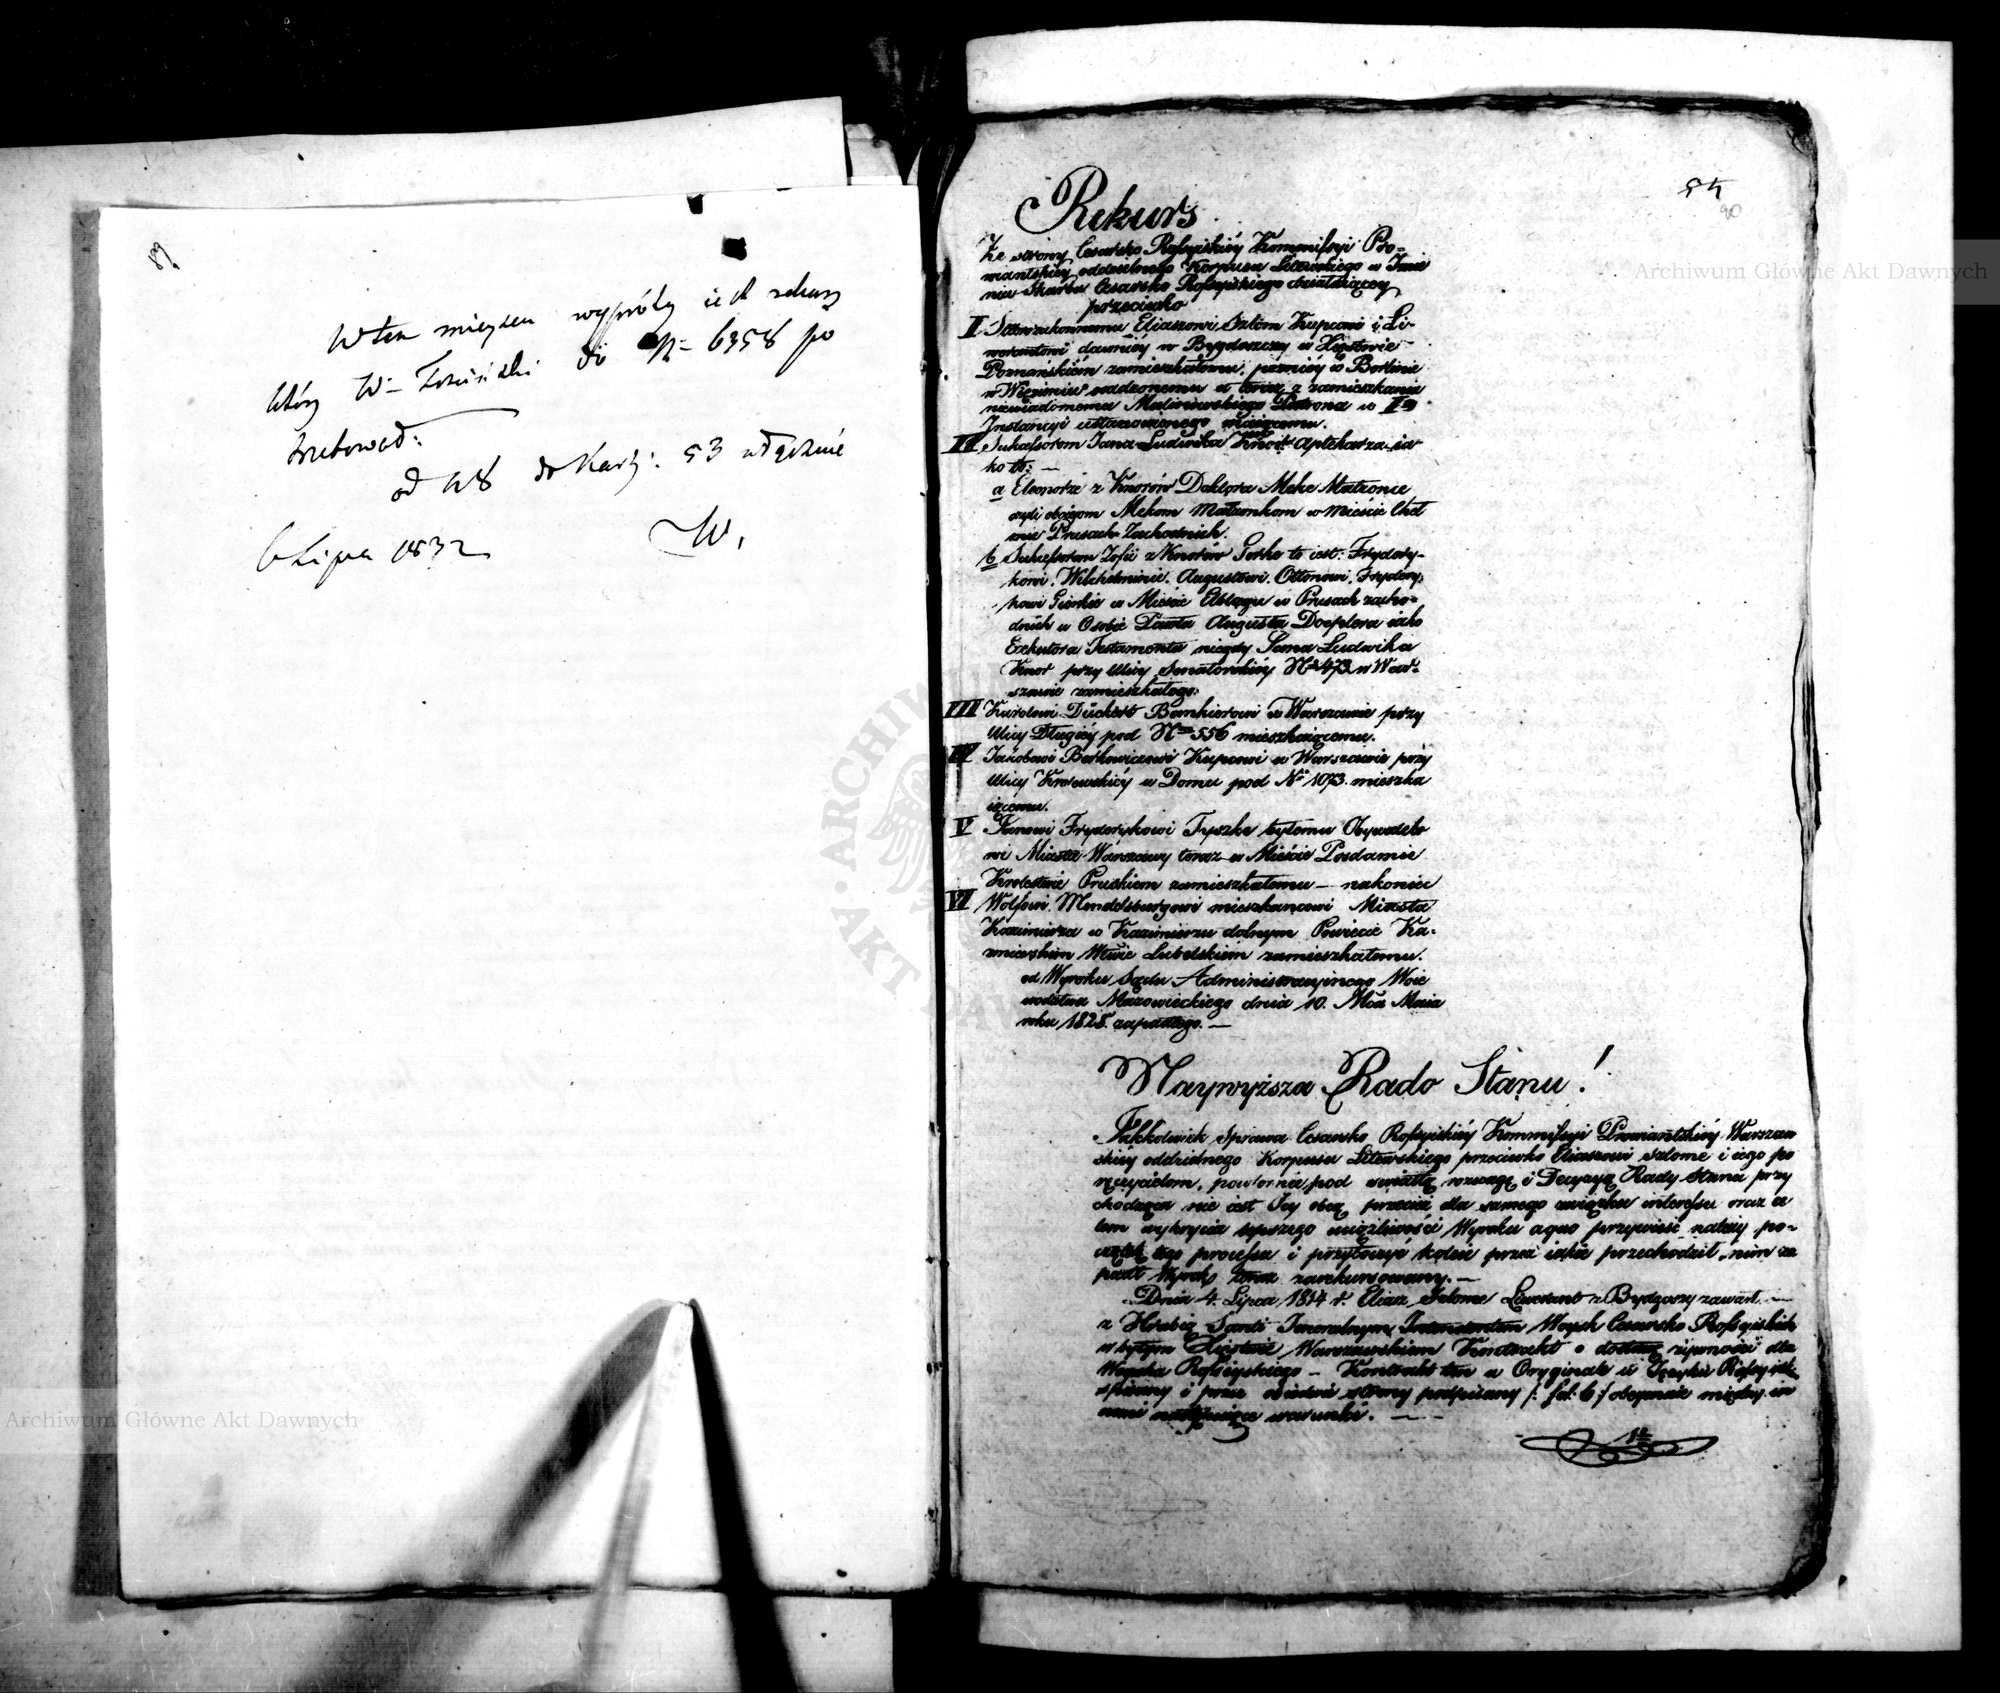 89.
W tem miejscu
który W. do N= 6358 po
trzebował:
od 48 do Karty: 53 włącznie
6 Lipca 1832
W.
54
90
Rekurs
Ze strony Cesarsko Rossyiskiéy Kommissyi Pro=
wiantskiéy oddzielnego Korpusu Litewskiego w Imie
niu Skarbu Cesarsko Rossyiskiego działaiącey
przeciwko
I Starozakonnemu Eliaszowi Salom Kupcowi i Li-
werantowi dawniéy w Bydgoszczy w Xięstwie
Poznańskiém zamieszkałemu, pozniéy w Berlinie
w Więzieniu osadzonemu a teraz z zamieszkania
niewiadomemu Malinowskiego Patrona w I
Instancyi ustanowionego maiącemu.
II Sukcessorom Jana Ludwika Knor Aptekarza ia-
ko to: —
a Eleonorze z Knorów Doktora Meke Małżonce
czyli oboygom Mekom Małżonkom w Mieście Cheł
mie Prusach Zachodnich.
b Sukcessorom Zofii z Knorów Gerke to iest: Frydery-
kowi, Wilchelminie, Augustowi, Ottonowi, Frydery
kowi Gierke w Mieście Elblągu w Prusach zacho=
dnich w Osobie Pawła Augusta Doeplera iako
Exekutora Testamentu niegdy Jana Ludwika
Knor przy Ulicy Senatorskiéy No 473 w War-
szawie zamieszkałego:
III Karolowi Dückert Bankierowi w Warszawie przy
Ulicy Długiéy pod No 556 mieszkaiącemu.
IV Jakobowi Bełkowiczowi Kupcowi w Warszawie przy
Ulicy Krolewskiéy w Domu pod No 1073. mieszka
iącemu.
V Janowi Fryderykowi Tyszke byłemu Obywatelo
wi Miasta Warszawy teraz w Mieście Posdamie
Krolestwie Pruskiem zamieszkałemu — nakoniec
VI Wolfowi Mendelsburgowi mieszkancowi Miasta
Kazimierza w Kazimierzu dolnym Powiecie Ka-
zmierskim Wdztwie Lubelskiem zamieszkałemu.
od Wyroku Sądu Administracyinego Woie
wodztwa Mazowieckiego dnia 10. Mca Maia
roku 1828. zapadłego. —
Naywyższa Rado Stanu!
Jakkolwiek Sprawa Cesarsko Rossyiskiéy Kommissyi Prowiantskiéy Warszaw
skiéy oddzielnego Korpusu Litewskiego przeciwko Eliaszowi Salome i iego po
ręczycielom, powtornie pod światłą rozwagę i Decyzyą Rady Stanu przy
chodząca nie iest Jéy obcą przecież dla samego związku interessu oraz a
tem wykrycia lepszego uciążliwości Wyroku a quo przywieść należy po-
czątek tego processu i przytoczyć koleie przez iakie przechodził, nim za
padł Wyrok teraz zarekursowany. —
Dnia 4. Lipca 1814 r. Eliasz Salome Liwerant z Bydgoszy zawarł —
z Hrabią Santi Jeneralnym Intendentem Woysk Cesarsko Rossyiskich
w byłym Xięstwie Warszawskiem Kontrakt o dostawę żywności dla
Woyska Rossyiskiego — Kontrakt ten w Oryginale w Języku Rossyisk
spisany i przez obiedwie strony podpisany /: fol: 6 :/ obeymuie między in
nemi następuiące warunki. —
1e